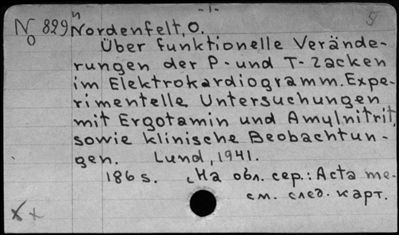 -1-
No 829n Nordenfelt, O.
Über funktionelle Verände-
rungen der P- und T-Zacken
im Elektrokardiogramm. Expe-
rimentelle Untersuchungen
mit Ergotamin und Amylnitrit,
sowie klinische Beobachtun-
gen. Lund, 1941.
186 s. На обл. сер.: Acta me-
см. след. карт.